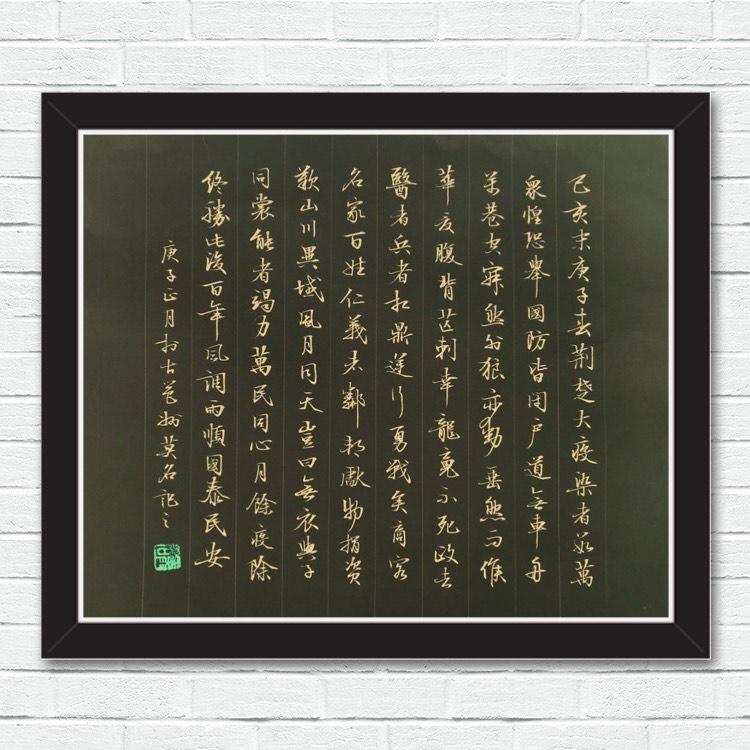 己亥末庚子春荆楚大疫染者数萬
眾惶恐舉國防皆閉戶道無車舟
萬巷空寂然外狼亦動垂然而候
華夏腹背芒刺幸龍魂不死政者
醫者兵者扛鼎逆行勇戰矣商客
名家百姓仁義者鄰邦獻物捐資
歎山川異域風月同天豈曰無衣與子
同裳能者竭力萬民同心月餘疫除
終勝此後百年風調雨順國泰民安
庚子正月於古州莫名記之